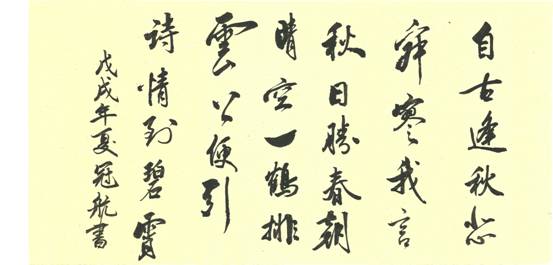 自古逢秋悲
寂寥我言
秋日勝春朝
晴空一鶴排
雲上便引
詩情到碧霄
戊戌年夏冠航書